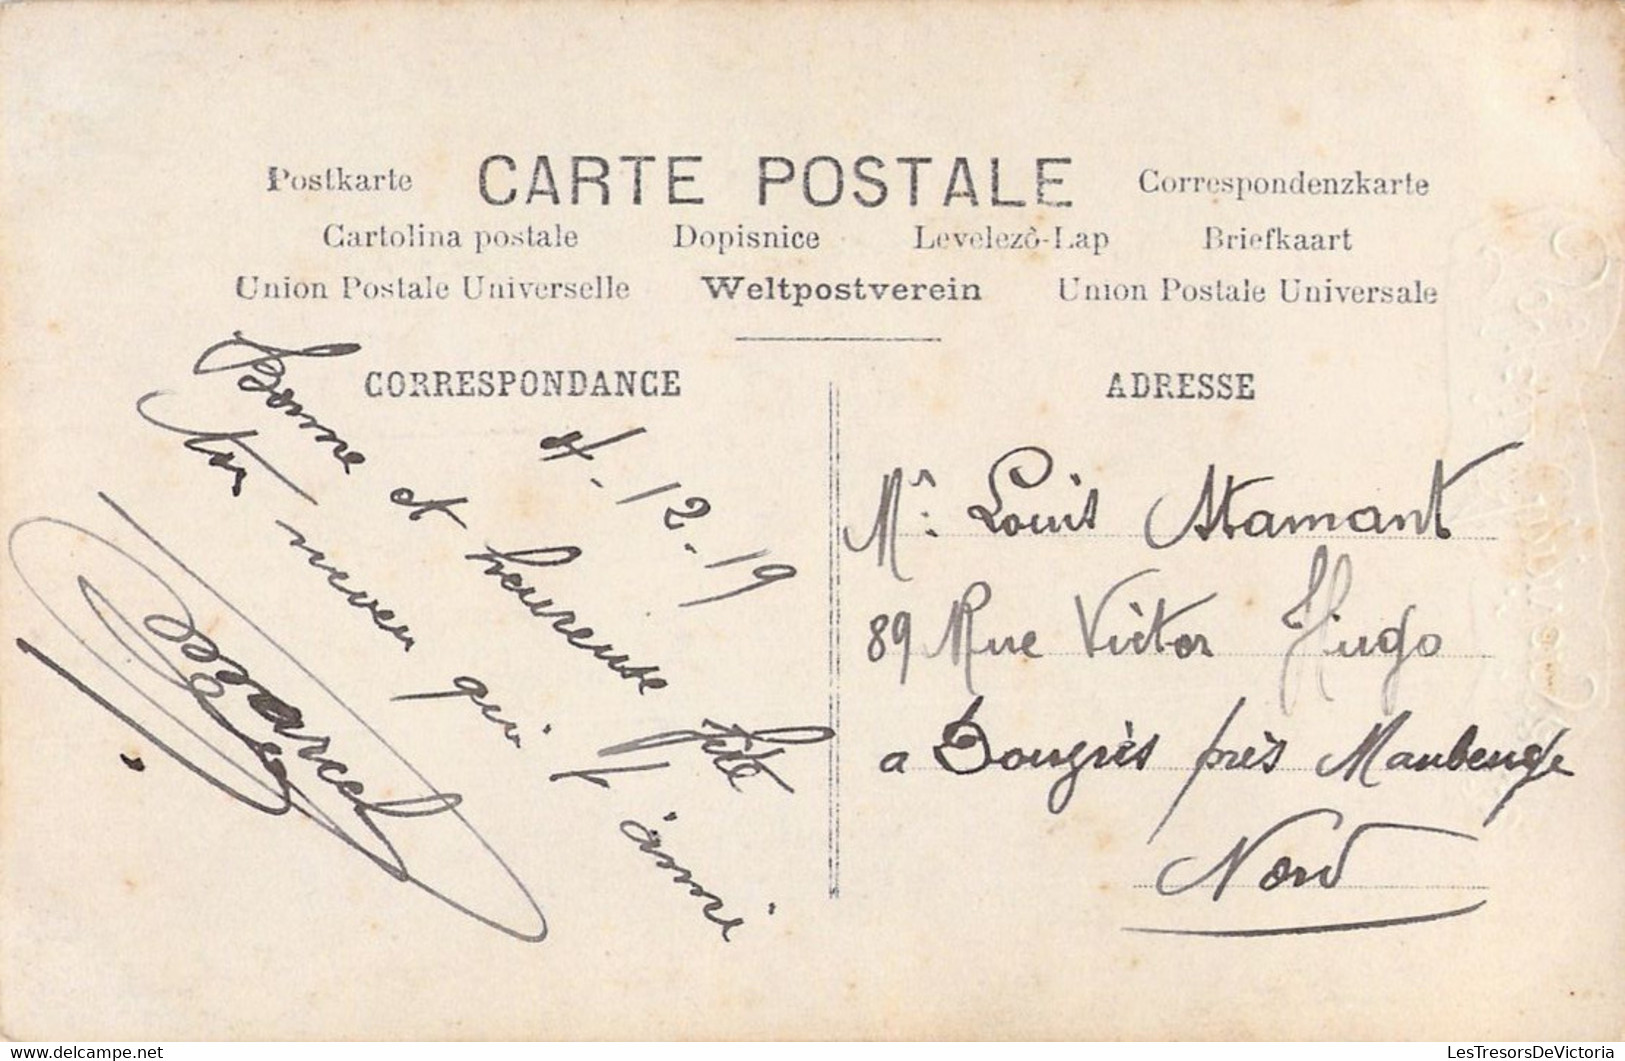 Postkarte CARTE POSTALE Correspondenzkarte
Cartolina postale Dopisnice Levelezô-Lap Briefkaart
Union Postale Universelle Weltpostverein Union Postale Universale
CORRESPONDANCE
4-12-19
Bonne et heureuse fête
Ton neveu qui t'aime
Marcel
ADRESSE
Mr. Louis Stamant
89 Rue Victor Hugo
a Douzies près Maubeuge
Nord
LesTresorsDeVictoria